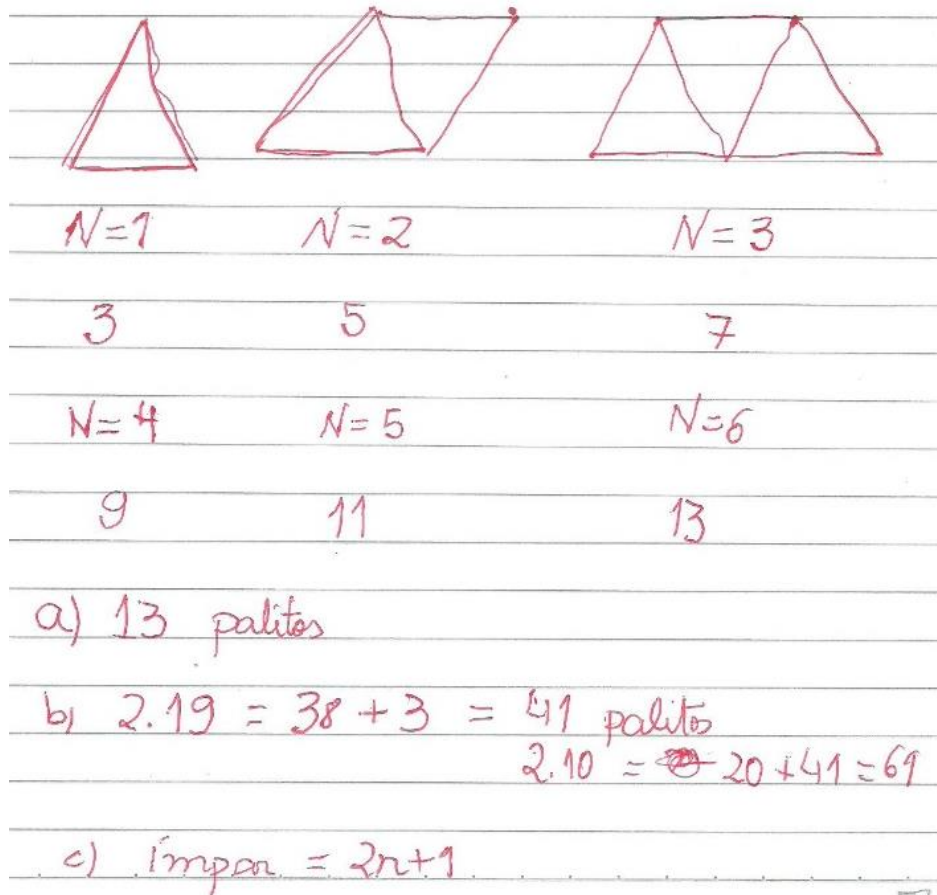 N=1 N=2 N=3
3 5 7
N=4 N=5 N=6
9 11 13
a) 13 palitos
b) 2.19 = 38 + 3 = 41 palitos
2.10 = 20 + 41 = 61
c) ímpar = 2n+1